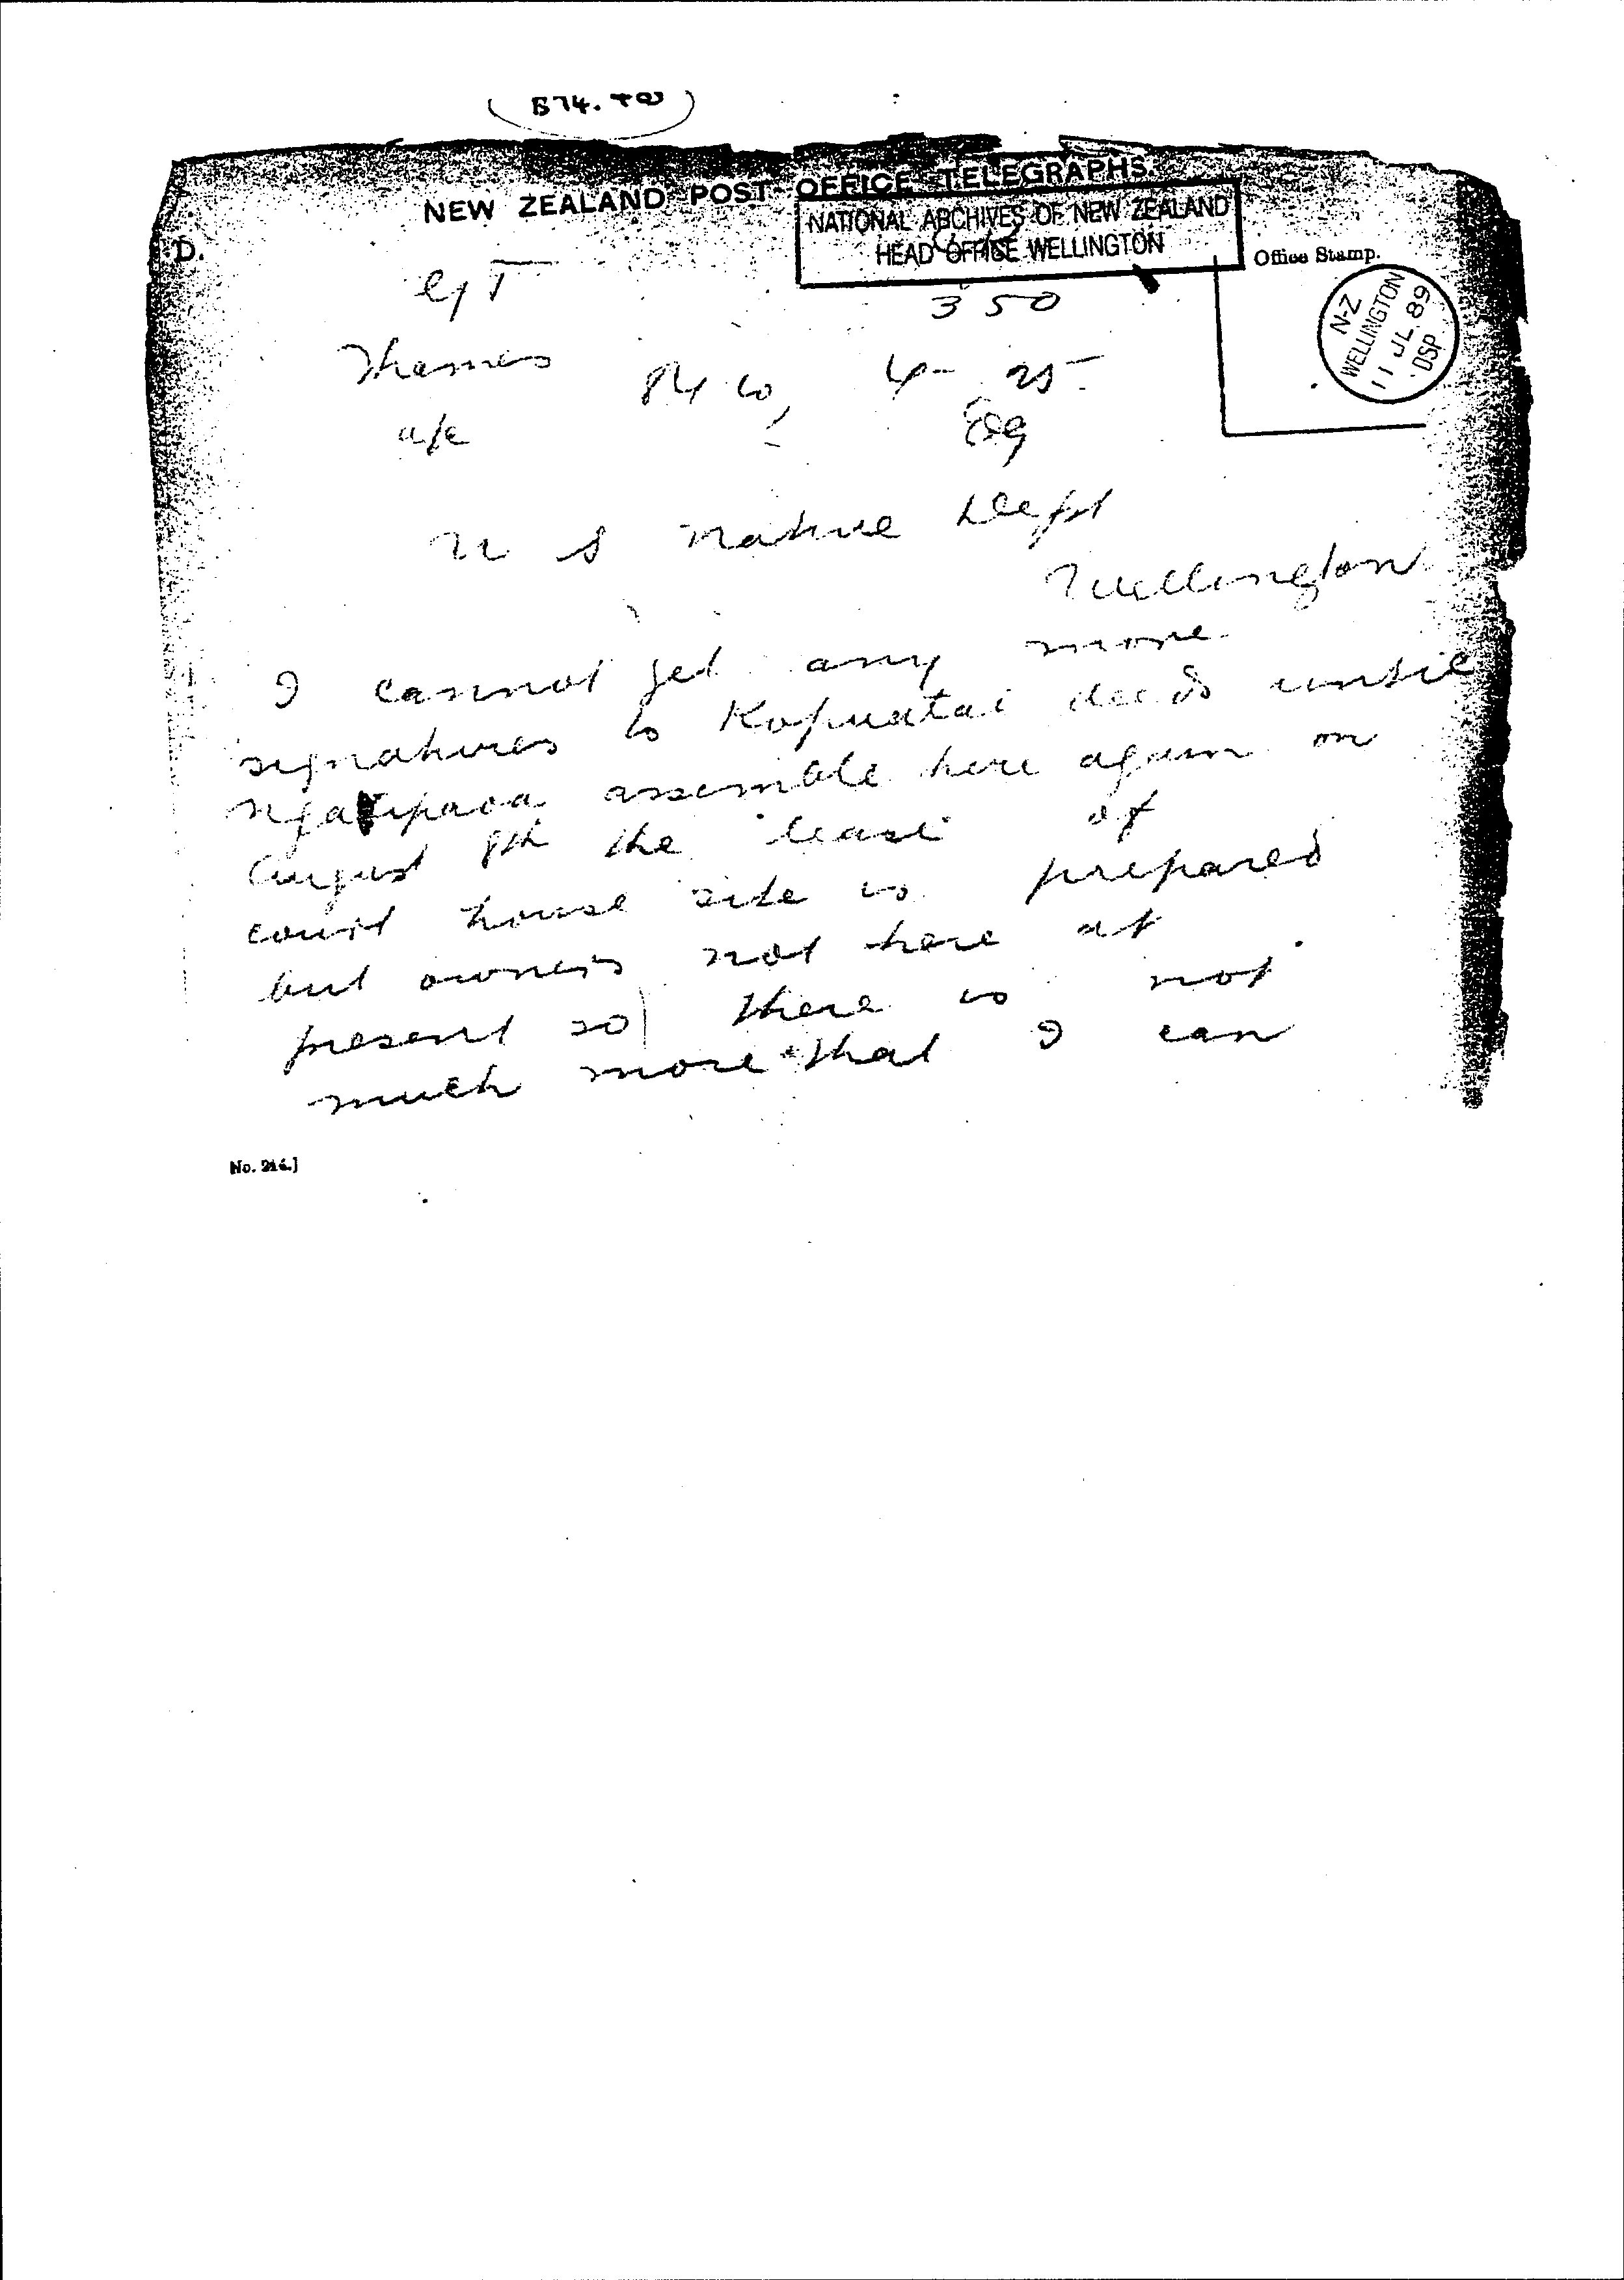 NEW ZEALAND POST OFFICE TELEGRAPHS.
NATIONAL ARCHIVES OF NEW ZEALAND
HEAD OFFICE WELLINGTON
D.
Office Stamp.
N-Z
WELLINGTON
11 JL 89
DSP
350
Thames 84 w, 4-25
a/c
U S Native Dept
Wellington
I cannot get any more
signatures to Kopuatai deeds until
ngatipaoa assemble here again on
August 8th the lease of
court house site is prepared
but owners not here at
present so there is not
much more that I can
No. 214.]